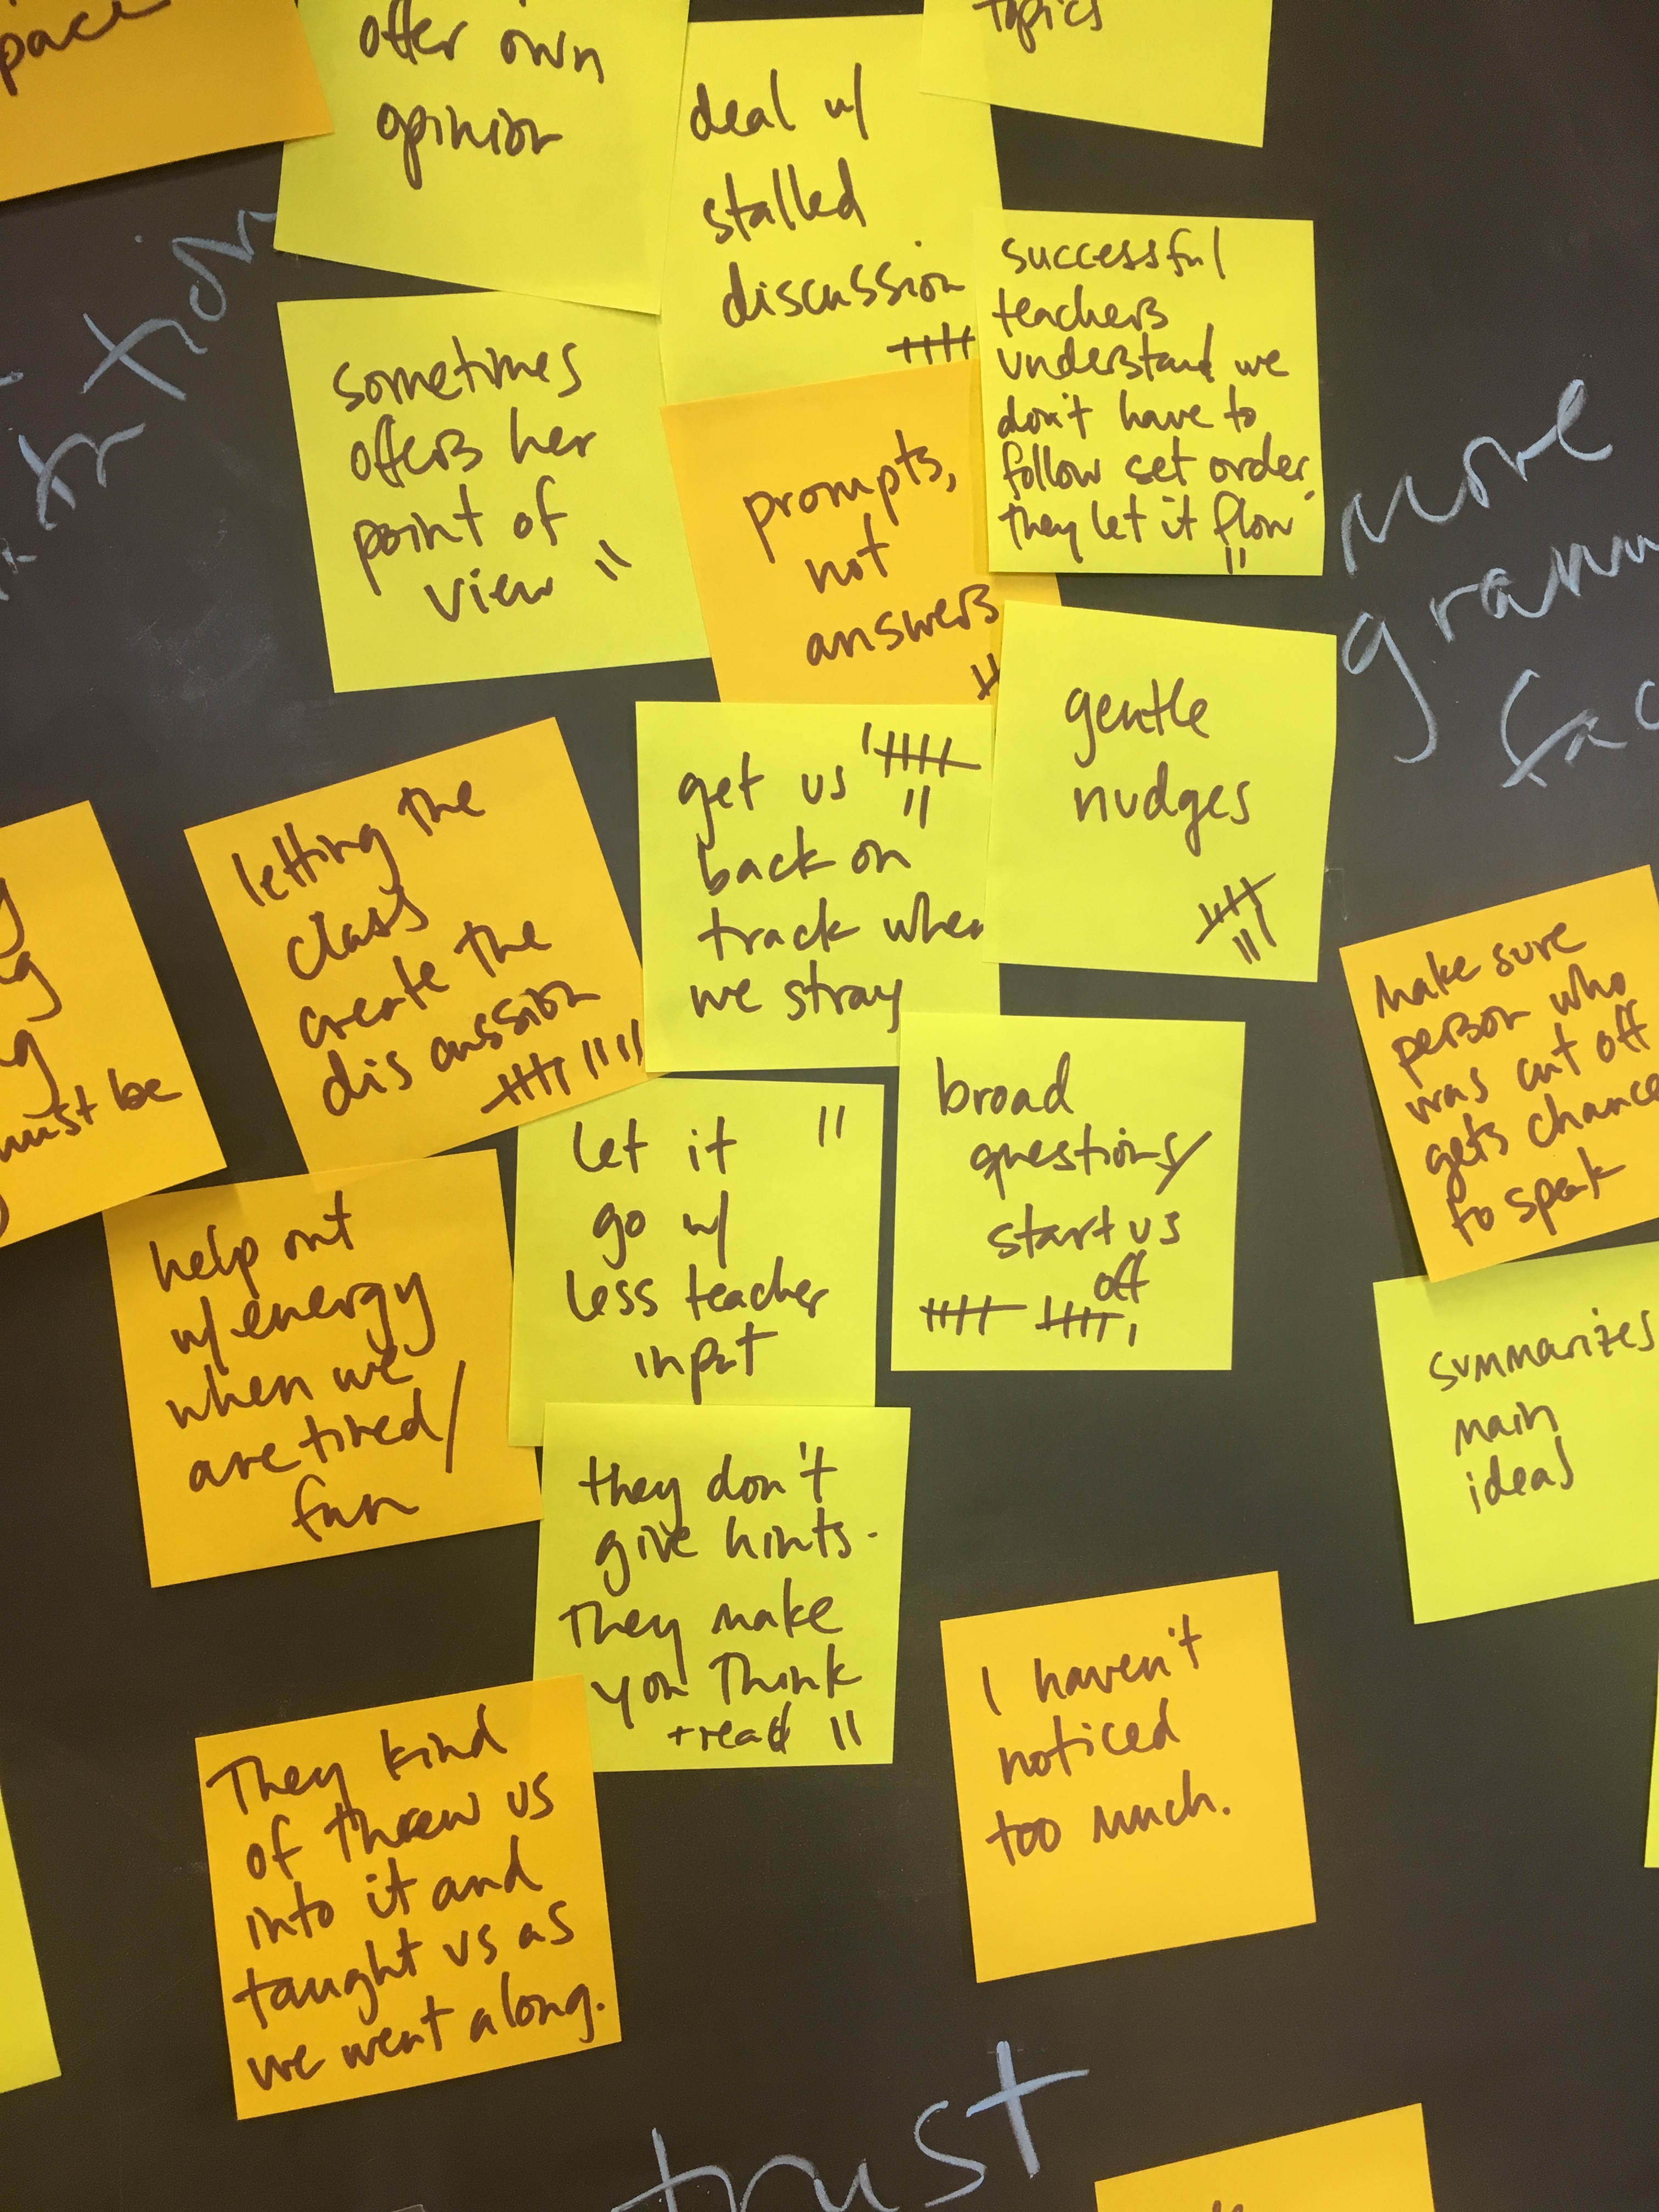 pace
offer own
opinion
deal w/
stalled
discussion
topics
successful
teachers
understand we
don't have to
follow set order,
they let it flow
sometimes
offers her
point of
view
prompts,
not
answers
more
gentle
nudges
get us
back on
track when
we stray
letting the
class
create the
discussion
must be
make sure
person who
was cut off
gets chance
to speak
let it
go w/
less teacher
input
broad
questions/
start us
off
help out
w/ energy
when we
are tired/
fun
summarizes
main
ideas
they don't
give hints.
They make
you think
+ read
I haven't
noticed
too much.
They kind
of threw us
into it and
taught us as
we went along.
trust